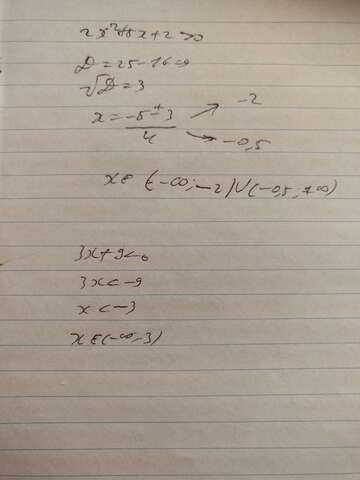 2x²+5x+2>0
D=25-16=9
√D=3
x=-5±3/4 → -2 → -0,5
x∈(-∞;-2)∪(-0,5;+∞)
3x+9<0
3x<-9
x<-3
x∈(-∞;-3)